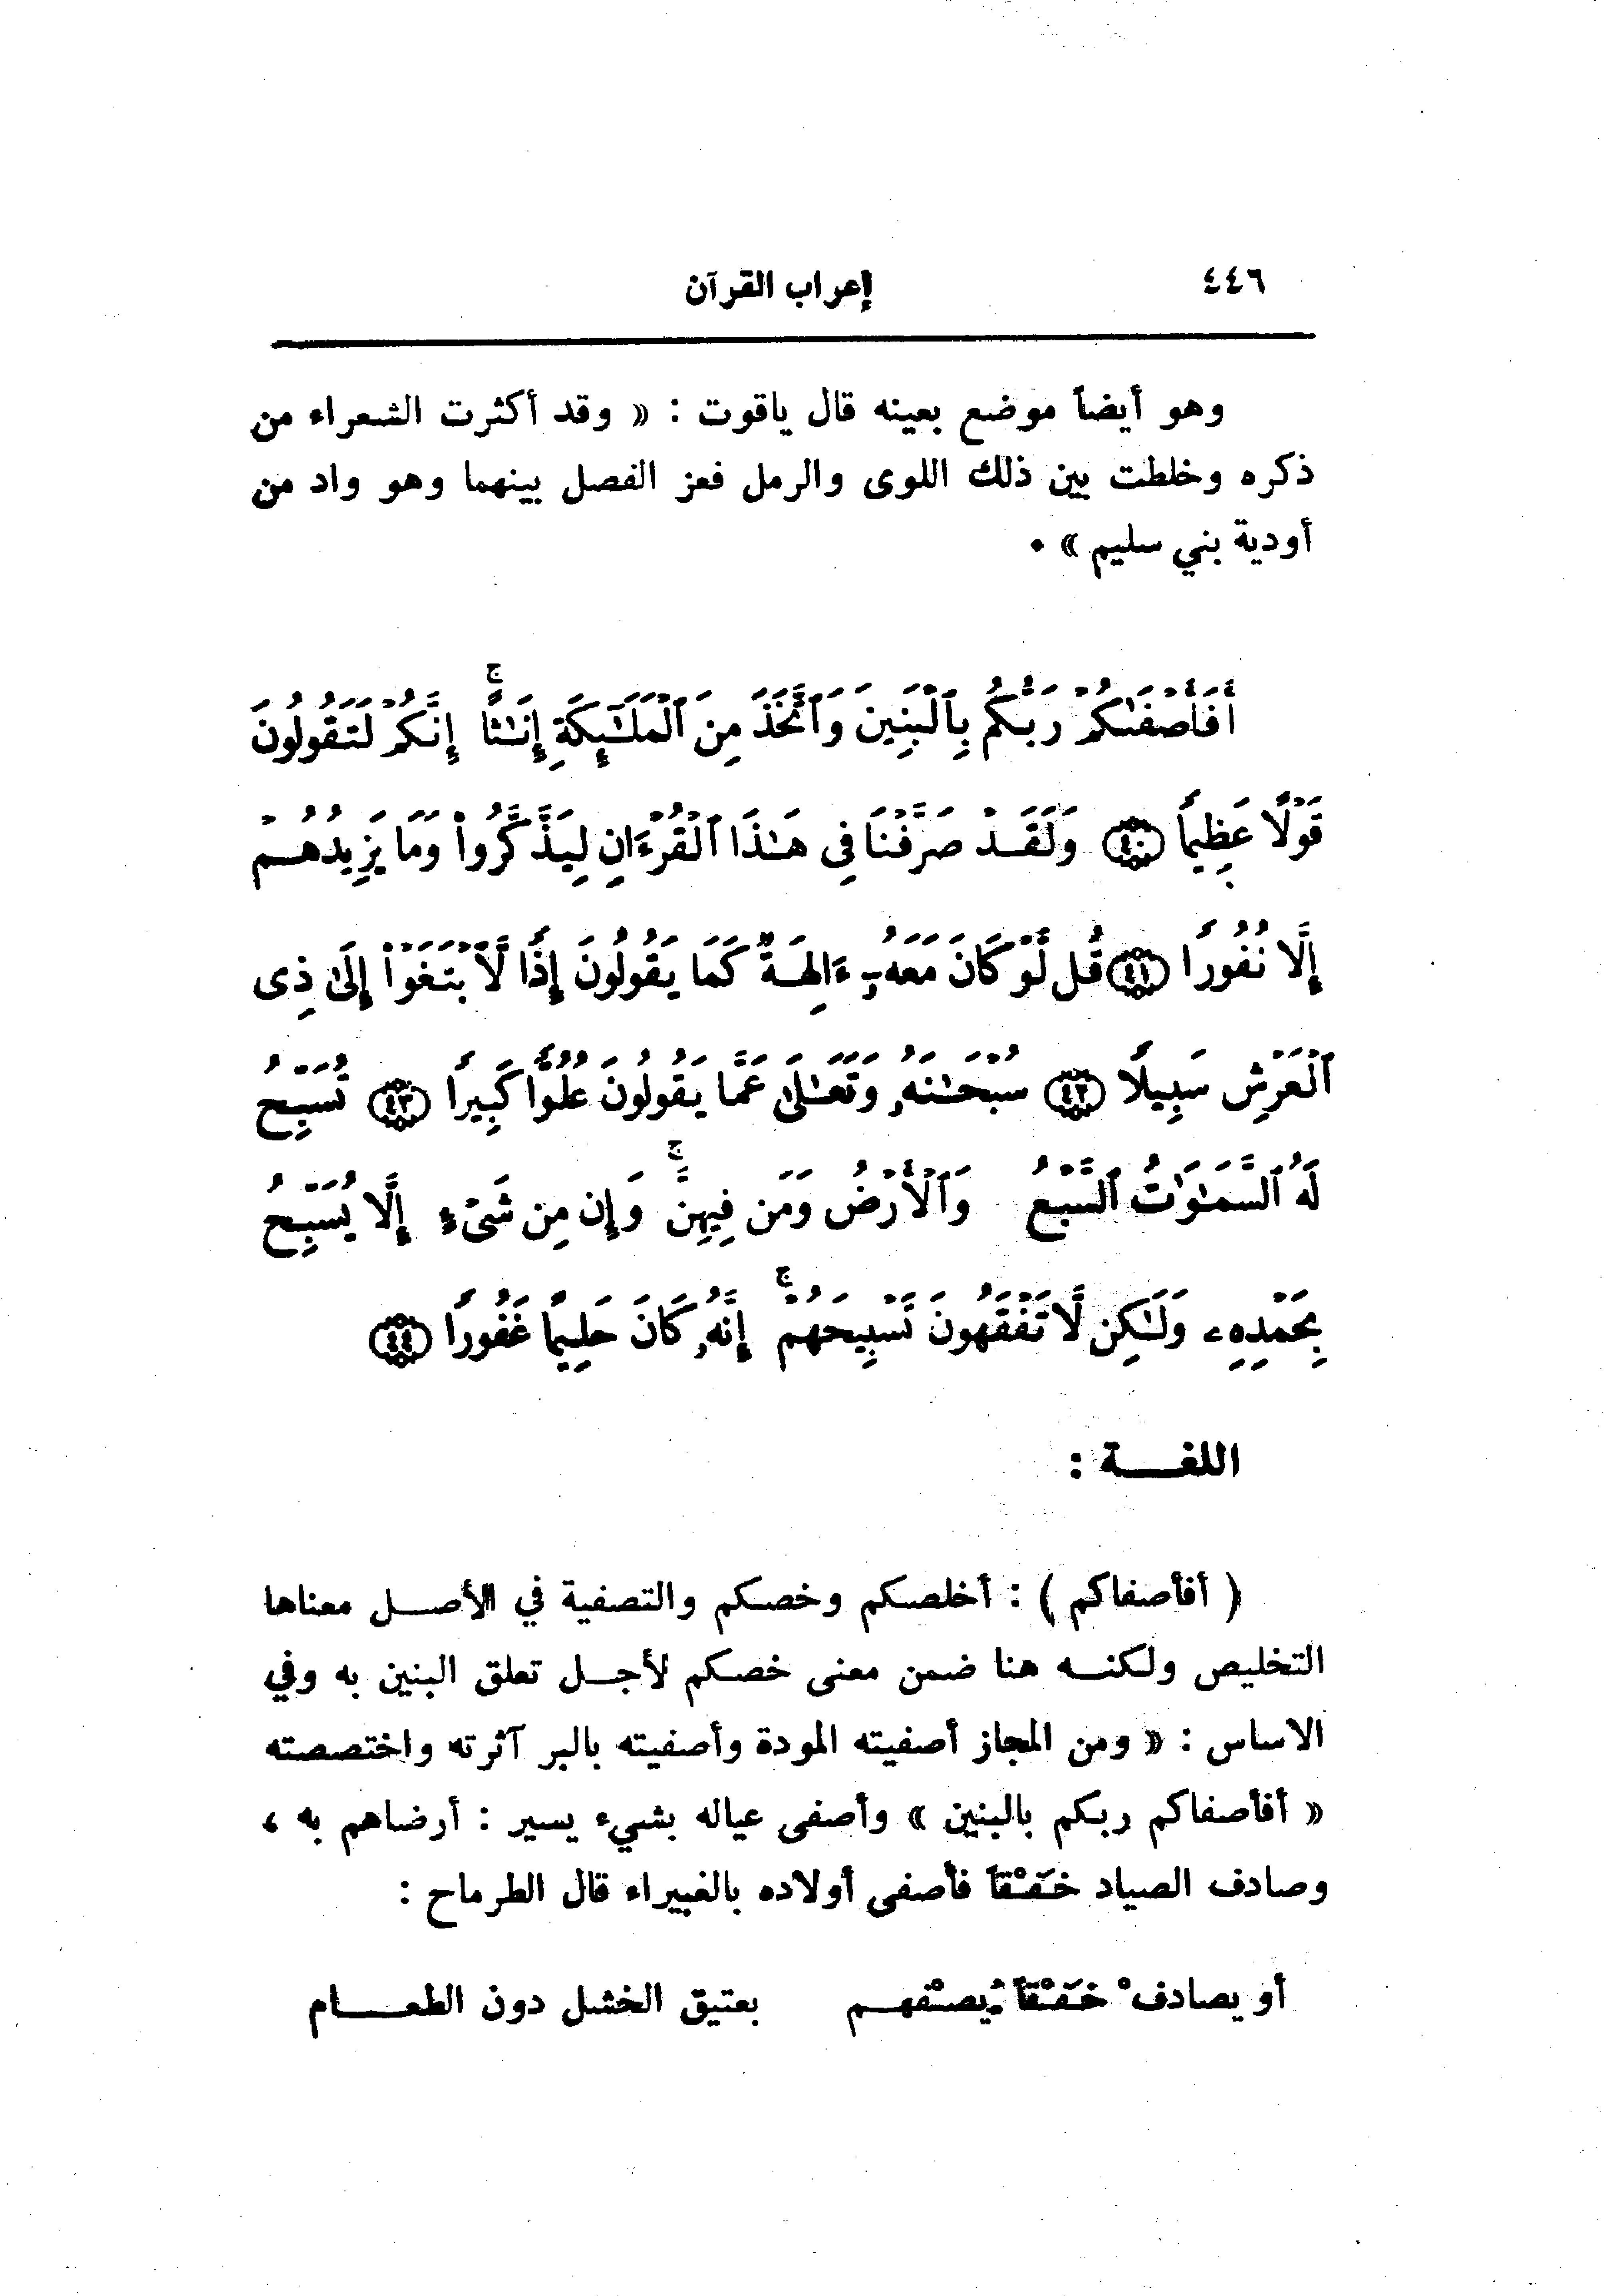 ٤٤٦
إعراب القرآن
وهو أيضاً موضع بعينه قال ياقوت : « وقد أكثرت الشعراء من
ذكره وخلطت بين ذلك اللوى والرمل فعز الفصل بينهما وهو واد من
أودية بني سليم » .
أَفَأَصْفَىٰكُمْ رَبُّكُم بِٱلْبَنِينَ وَٱتَّخَذَ مِنَ ٱلْمَلَٰٓئِكَةِ إِنَٰثًا ۚ إِنَّكُمْ لَتَقُولُونَ
قَوْلًا عَظِيمًا ﴿٤٠﴾ وَلَقَدْ صَرَّفْنَا فِى هَٰذَا ٱلْقُرْءَانِ لِيَذَّكَّرُوا۟ وَمَا يَزِيدُهُمْ
إِلَّا نُفُورًا ﴿٤١﴾ قُل لَّوْ كَانَ مَعَهُۥٓ ءَالِهَةٌ كَمَا يَقُولُونَ إِذًا لَّٱبْتَغَوْا۟ إِلَىٰ ذِى
ٱلْعَرْشِ سَبِيلًا ﴿٤٢﴾ سُبْحَٰنَهُۥ وَتَعَٰلَىٰ عَمَّا يَقُولُونَ عُلُوًّا كَبِيرًا ﴿٤٣﴾ تُسَبِّحُ
لَهُ ٱلسَّمَٰوَٰتُ ٱلسَّبْعُ وَٱلْأَرْضُ وَمَن فِيهِنَّ ۚ وَإِن مِّن شَىْءٍ إِلَّا يُسَبِّحُ
بِحَمْدِهِۦ وَلَٰكِن لَّا تَفْقَهُونَ تَسْبِيحَهُمْ ۚ إِنَّهُۥ كَانَ حَلِيمًا غَفُورًا ﴿٤٤﴾
اللغـــة :
( أفأصفاكم ) : أخلصكم وخصكم والتصفية في الأصل معناها
التخليص ولكنه هنا ضمن معنى خصكم لأجل تعلق البنين به وفي
الاساس : « ومن المجاز أصفيته المودة وأصفيته بالبر آثرته واختصصته
« أفأصفاكم ربكم بالبنين » وأصفى عياله بشيء يسير : أرضاهم به ،
وصادف الصياد خَفْقاً فأصفى أولاده بالغبيراء قال الطرماح :
أو يصادفْ خَفْقاً يُصْفهم بعتيق الخشل دون الطعـــام